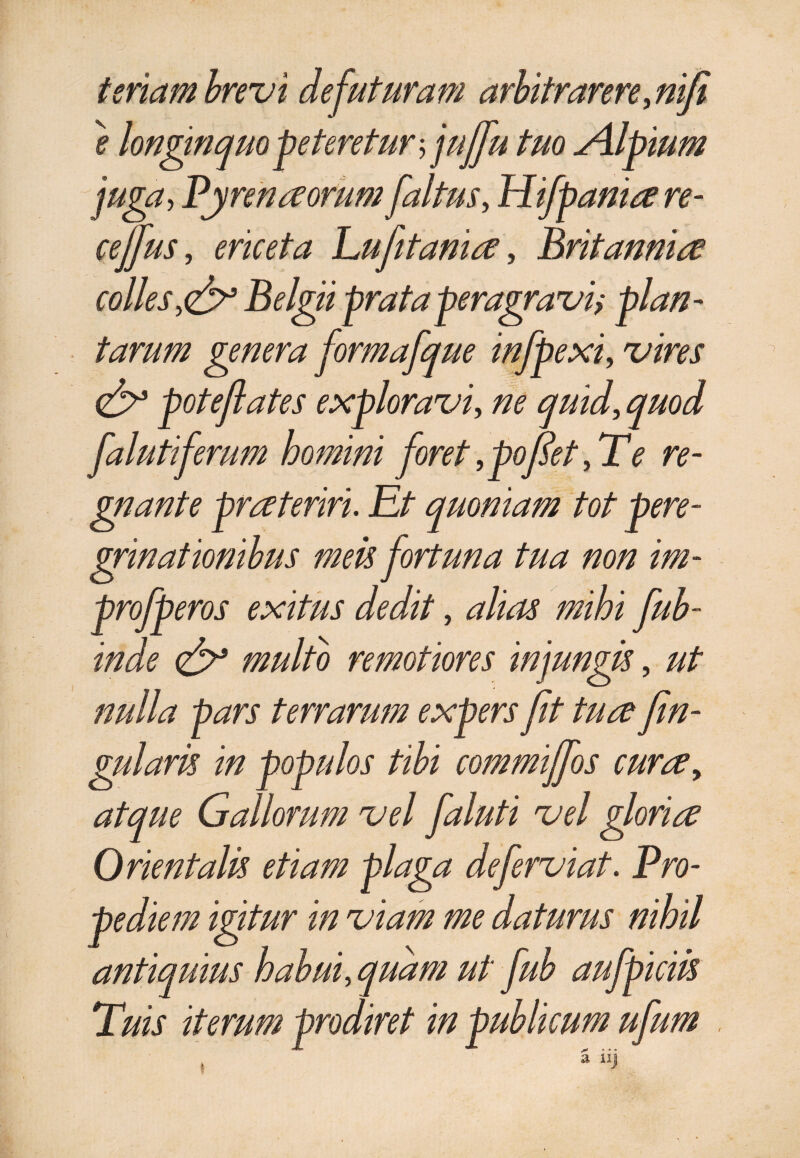 teriam brevi defuturam arbitrarere, niſi
è longinquo peteretur; juſſu tuo Alpium
juga, Pyrenæorum ſaltus, Hiſpaniæ re-
ceſſus, ericeta Luſitaniæ, Britanniæ
colles, & Belgii prata peragravi; plan-
tarum genera formaſque inſpexi, vires
& poteſtates exploravi, ne quid, quod
ſalutiferum homini foret, poſſet, Te re-
gnante præteriri. Et quoniam tot pere-
grinationibus meis fortuna tua non im-
proſperos exitus dedit, alias mihi ſub-
inde & multò remotiores injungis, ut
nulla pars terrarum expers ſit tuæ ſin-
gularis in populos tibi commiſſos curæ,
atque Gallorum vel ſaluti vel gloriæ
Orientalis etiam plaga deſerviat. Pro-
pediem igitur in viam me daturus nihil
antiquius habui, quàm ut ſub auſpiciis
Tuis iterum prodiret in publicum uſum
ã iij